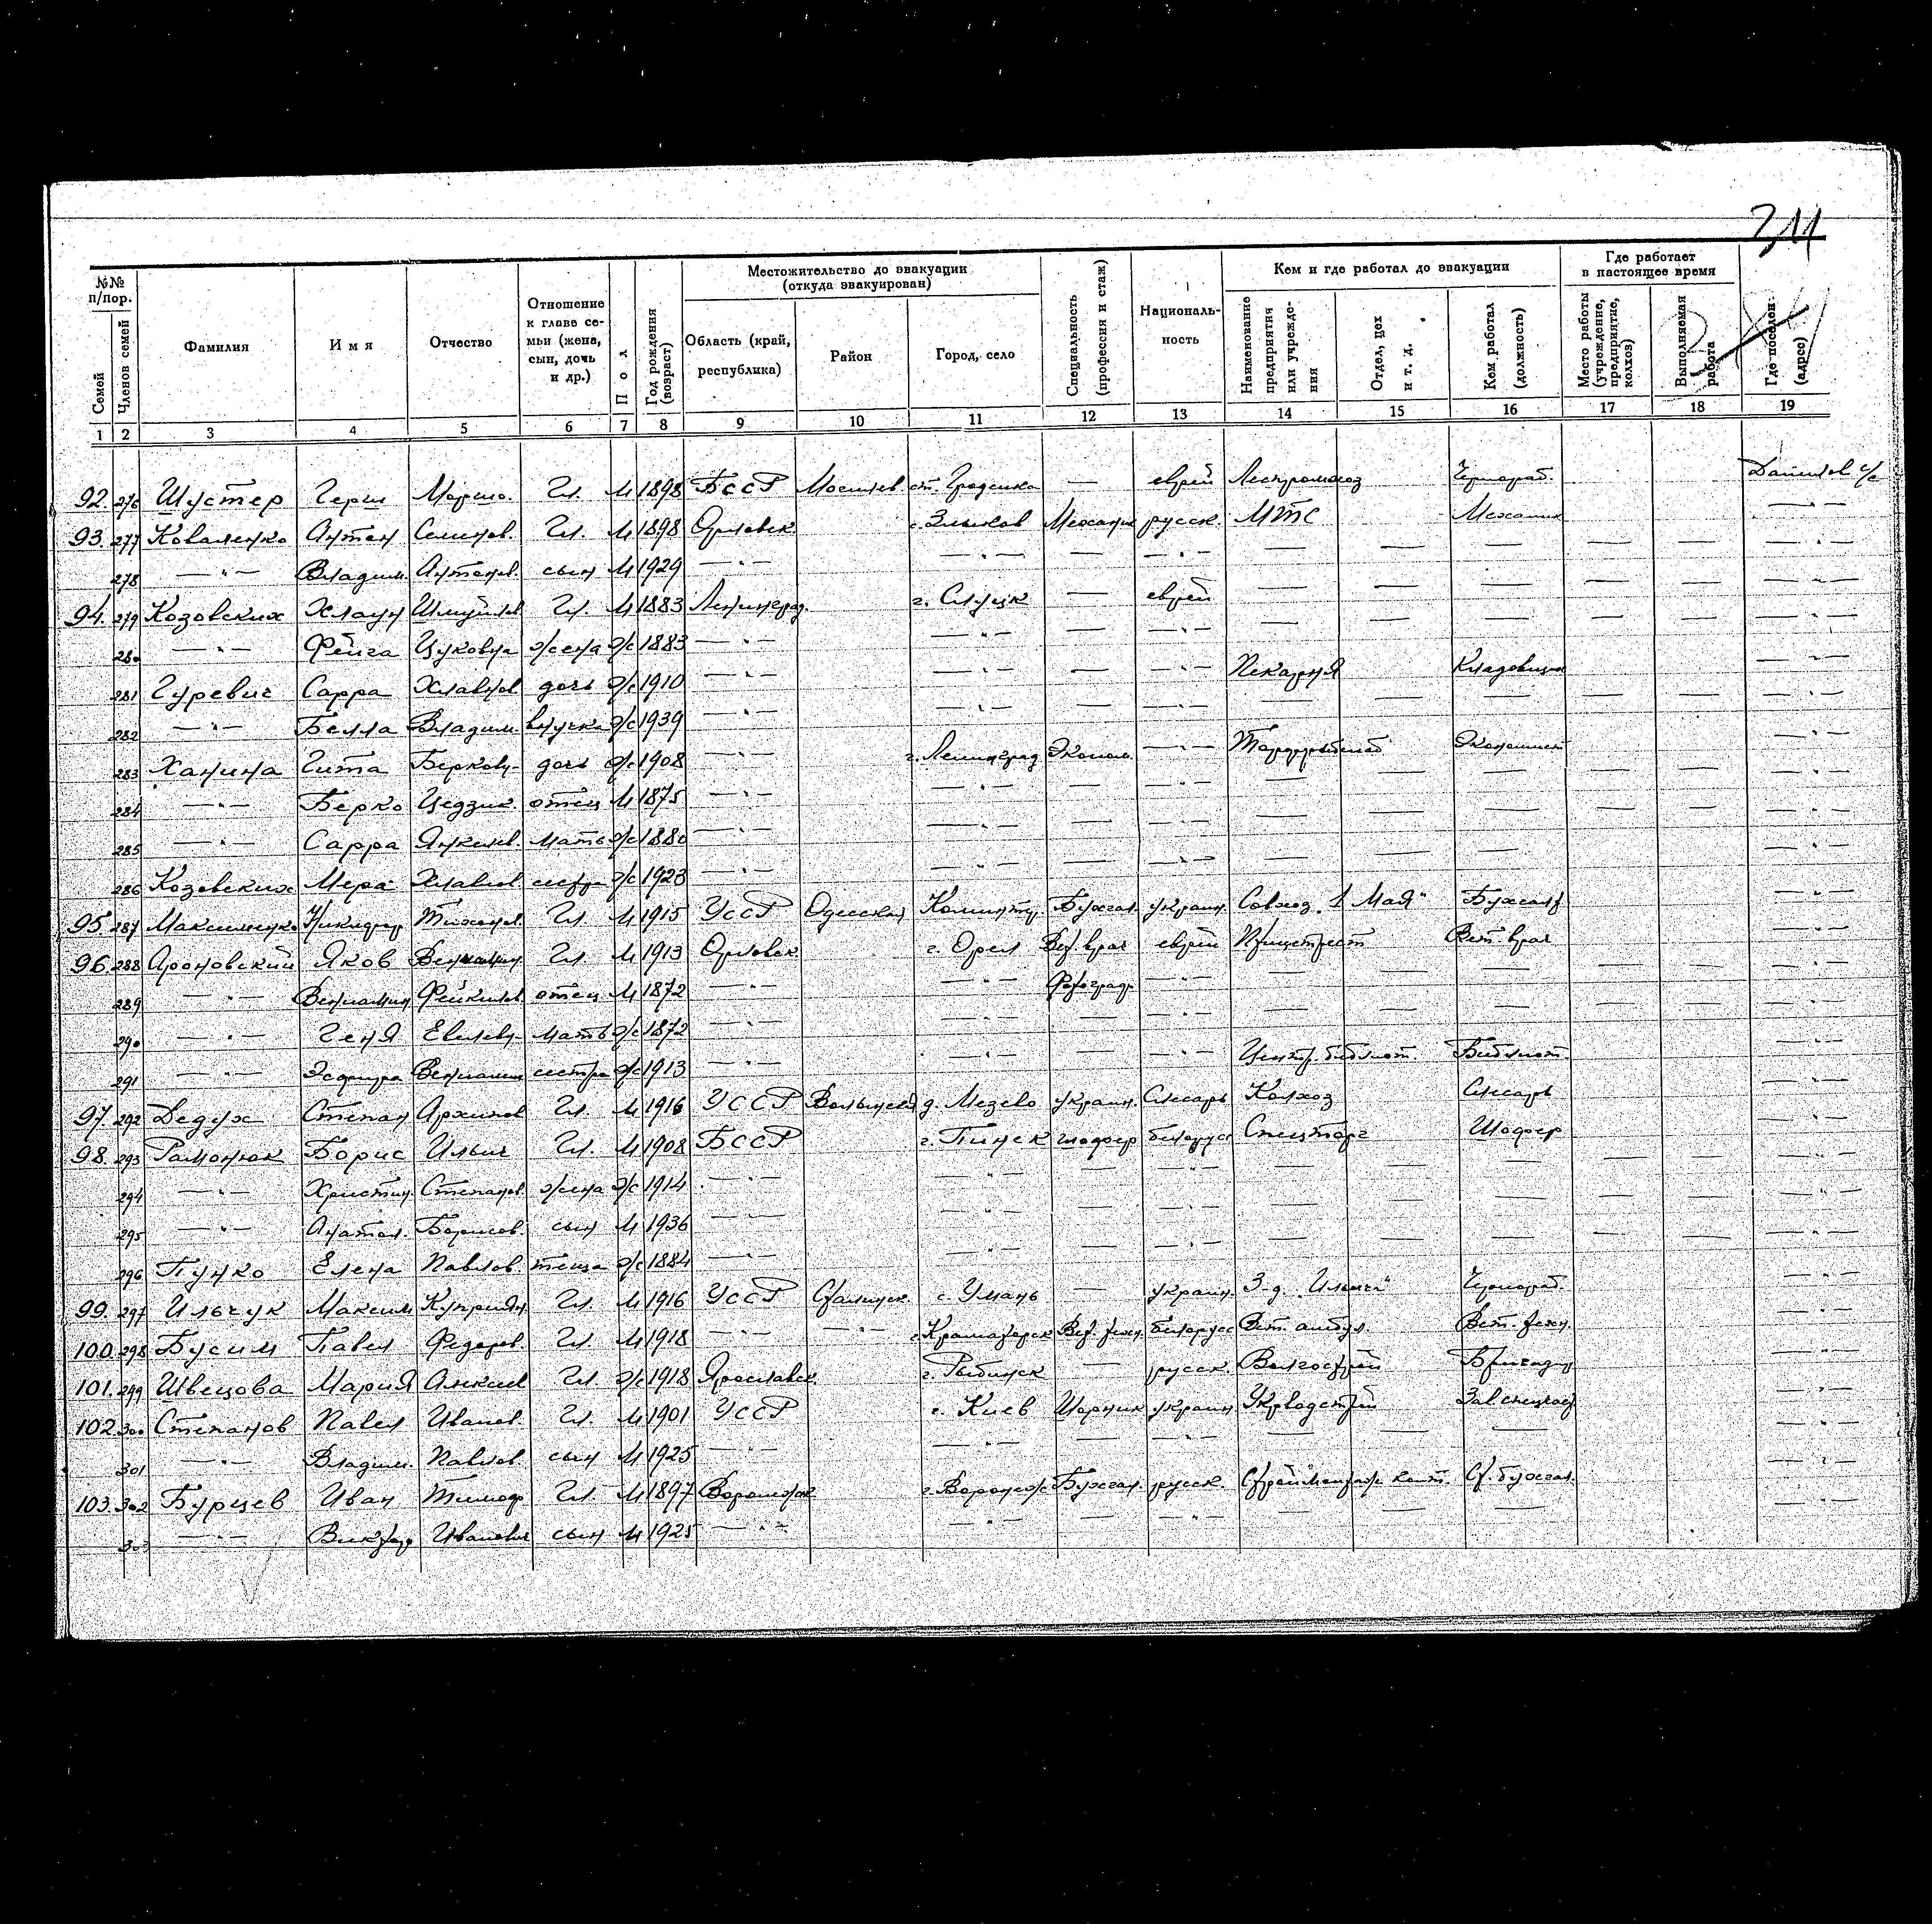 311
№№ п/пор.
Семей
Членов семей
Фамилия
Имя
Отчество
Отношение к главе семьи (жена, сын, дочь и др.)
Пол
Год рождения (возраст)
Местожительство до эвакуации (откуда эвакуирован)
Область (край, республика)
Район
Город, село
Специальность (профессия и стаж)
Националь-ность
Кем и где работал до эвакуации
Наименование предприятия или учрежде-ния
Отдел, цех и т. д.
Кем работал (должность)
Где работает в настоящее время
Место работы (учреждение, предприятие, колхоз)
Выполняемая работа
Где поселен (адрес)
1 2 3 4 5 6 7 8 9 10 11 12 13 14 15 16 17 18 19
92. 276 Шустер Герш Гл. М 1898 БССР — еврей Леспромхоз Чернораб. с/с
93. 277 Коваленко Антон Семенов. Гл. М 1898 Орловск. Механик русск. МТС Механик — " —
278 — " — Владим. Антонов. сын М 1929 — " — — " — — — " — — — — — — — " —
94. 279 Козовских Гл. М 1883 Ленинград. г. Слуцк — еврей — — — — — — " —
280 — " — Фейга жена ж 1883 — " — — " — — — " — — — — — — — " —
281 Гуревич Сарра дочь ж 1910 — " — — " — — — " — Пекарня Кладовщик — " —
282 — " — Белла Владим. внучка ж 1939 — " — — " — — — " — — — — — — — " —
283 Ханина Гита Берков. дочь ж 1908 — " — г. Ленинград Эконом. — " — Экономист — " —
284 — " — Берко отец М 1875 — " — — " — — — " — — — — — — — " —
285 — " — Сарра Янкелев. мать ж 1880 — " — — " — — — " — — — — — — — " —
286 Козовских Мера сестра ж 1923 — " — — " — — — " — — — — — — — " —
95. 287 Тихонов. Гл. М 1915 УССР Одесский Бухгал. украин. Совхоз "1 Мая" Бухгалт. — " —
96. 288 Ароновский Яков Вениамин. Гл. М 1913 Орловск. г. Орел Вет. врач еврей Вет. врач — " —
289 — " — Вениамин отец М 1872 — " — — " — Фотограф — " — — — — — — — " —
290 — " — Геня мать ж 1872 — " — — " — — " — — — — — — — " —
291 — " — Вениамин сестра ж 1913 — " — — " — — — " — Центр. библиот. Библиот. — " —
97. 292 Дедух Степан Архипов Гл. М 1916 УССР Волынский д. Мезево украин. Слесарь Колхоз Слесарь — " —
98. 293 Рамонюк Борис Ильич Гл. М 1908 БССР г. Пинск шофер белорус Спецторг Шофер — " —
294 — " — Христин. Степанов. жена ж 1914 — " — — " — — — " — — — — — — — " —
295 — " — Анатол. Борисов. сын М 1936 — " — — " — — — " — — — — — — — " —
296 Пунко Елена Павлов. теща ж 1884 — " — — " — — — " — — — — — — — " —
99. 297 Ильчук Максим Гл. М 1916 УССР с. Умань — украин. З-д. "Ильича" Чернораб. — " —
100. 298 Бусим Павел Федоров. Гл. М 1918 — " — — " — г. Краматорск Вет. техн. белорусс Вет. амбул. Вет. техн. — " —
101. 299 Швецова Мария Алексеев Гл. ж 1918 Ярославск. г. Рыбинск — русск. Волгострой Бригадир — " —
102. 300 Степанов Павел Иванов. Гл. М 1901 УССР г. Киев Шорник украин. Укрводстрой — " —
301 — " — Владим. Павлов. сын М 1925 — " — — " — — — " — — — — — " —
103. 302 Бурцев Иван Тимоф. Гл. М 1897 Воронежск г. Воронеж Бухгал. русск. Строймонтаж. конт. Ст. бухгал. — " —
303 — " — Виктор Иванович сын М 1925 — " — — " — — — " — — — — — — — " —